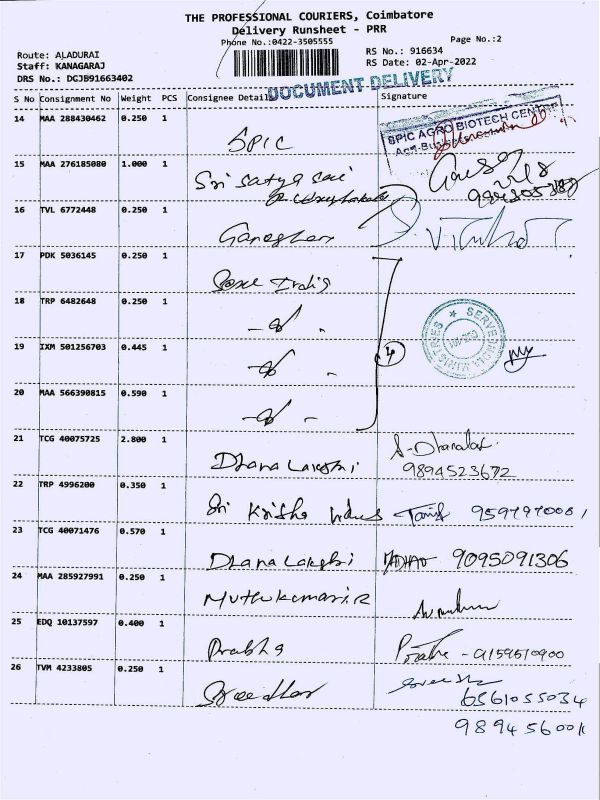 THE PROFESSIONAL COURIERS, Coimbatore
Delivery Runsheet - PRR
Phone No.:0422-3505555
Page No.:2
Route: ALADURAI
Staff: KANAGARAJ
DRS No.: DCJB91663402
RS No.: 916634
RS Date: 02-Apr-2022
DOCUMENT DELIVERY
S No Consignment No Weight PCS Consignee Details Signature
14 MAA 288430462 0.250 1 SPIC SPIC AGRO BIOTECH CENTRE
15 MAA 276185080 1.000 1 Sri Satya Sai
16 TVL 6772448 0.250 1 Ganeshan
17 PDK 5036145 0.250 1 Serve India
18 TRP 6482648 0.250 1
19 IXM 501256703 0.445 1 4 SERVE INDIA MINISTRIES
20 MAA 566390815 0.590 1
21 TCG 40075725 2.800 1 Dhana Lakshmi S-Dhanalax
9894523672
22 TRP 4996200 0.350 1 Sri Krishna
23 TCG 40071476 0.570 1 Dhana Lakshmi MADHAV 9095091306
24 MAA 285927991 0.250 1 Muthukumar.R
25 EDQ 10137597 0.400 1 Prabha
26 TVM 4233805 0.250 1 Sreedhar
6561055034